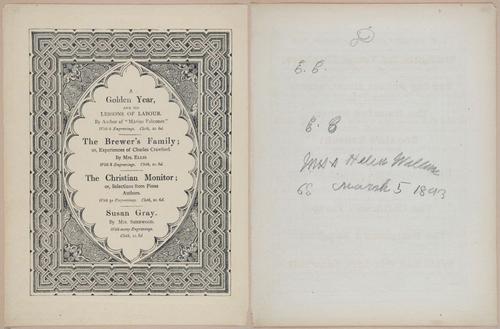 A
Golden Year,
AND ITS
LESSONS OF LABOUR.
By Author of "Marian Falconer."
With 6 Engravings. Cloth, 2s. 6d.
The Brewer's Family;
or, Experiences of Charles Crawford.
By Mrs. Ellis
With 8 Engravings. Cloth, 2s. 6d.
The Christian Monitor;
or, Selections from Pious
Authors.
Susan Gray.
By Mrs. Sherwood.
With many Engravings.
Cloth, 2s. 6d
E. E.
E. E
Helen
March 5 1893